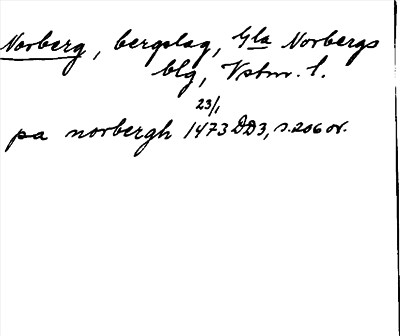 Norberg, bergslag, Gla Norbergs
blg, Vstm. l.
23/1
pa norbergh 1473 DD3, s. 206 or.